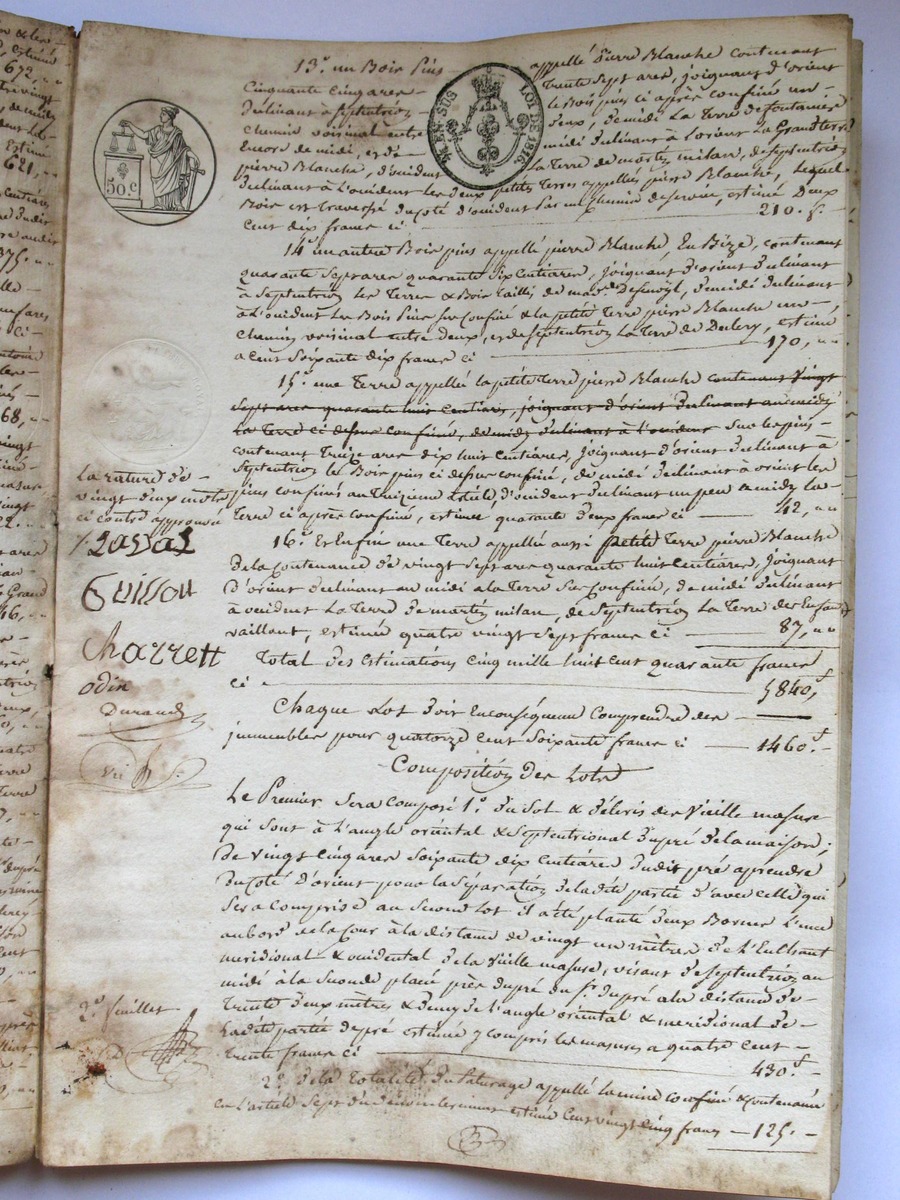 13.° un Bois Pins appellé Pierre Blanche contenant
Cinquante cinq ares trente sept ares, joignant d'orient
déclinant à septentrion le Bois pins ci après confiné un
chemin voisinal entre deux, de midi La Terre de fontanier
Encore de midi, et de midi déclinant à Lorient La Grand terre
pierre Blanche, d'ouident La Terre de martin milan, de septentrion
déclinant à L'ouident les deux petites Terres appellées pierre Blanche, Lequel
Bois est traversé du coté d'ouident par un chemin de service, estimé Deux
Cent dix francs ci 210. f.
EN SUS LOI DE 1816
50 c
14.° un autre Bois pins appellé pierre Blanche, En Bize, contenant
quarante sept ares quarante six centiares, joignant d'orient déclinant
à Septentrion les Terres & Bois taillis de mad.e, de midi déclinant
à L'ouident les Bois Pins sus confiné & la petite Terre pierre Blanche un
chemin voisinal entre deux, et de septentrion La Terre de, estimé
a cent soixante dix francs ci 170, ""
15.° une Terre appellée la petite Terre pierre Blanche contenant vingt
sept ares quarante huit centiares, joignant d'orient déclinant au midi
la Terre ci dessus confiné, de midi déclinant à l'ouident
contenant Treize ares dix huit centiares, joignant d'orient déclinant à
Septentrion le Bois pins ci dessus confiné, de midi déclinant à orient les
pins confinés au treizieme article d'ouident déclinant un peu a midi la
Terre ci après confiné, estimée quarante deux francs ci 42, ""
La rature de
vingt deux mots
ci contre approuvée
Laval
Guisson
Charrett
odin
Durand
16.° Et Enfin une Terre appellée aussi petite Terre pierre Blanche
de la contenance de vingt sept ares quarante huit centiares, joignant
d'orient déclinant au midi a la Terre sus confiné, de midi déclinant
à ouident La Terre de martin milan, de Septentrion La Terre des Enfants
vaillant, estimée quatre vingt sept francs ci 87, ""
Total des Estimations cinq mille huit cent quarante francs
ci 5840, f
Chaque Lot doit en conséquence comprendre des
immeubles pour quatorze cent soixante francs ci 1460. f
Composition des Lots
Le Premier sera composé 1.° du Sol & débris des Vieille masure
qui sont à L'angle oriental & septentrional du pré de la maison;
De vingt cinq ares soixante dix centiare dudit pré a prendre
du coté d'orient pour la séparation de la dite partie d'avec celle qui
sera comprise au second lot il a été planté deux Bornes L'une
au bord de la cour à la distance de vingt un mètres de L'
meridional & ouidental de la vieille masure, visant de septentrion au
midi à la seconde placée près du pré du S.r dupré a la distance de
trente deux mètres & demy de l'angle oriental & meridional de
La dite partie de pré estimée y compris les masures a quatre cent
trente francs ci 430. f
2.° De la totalité du Paturage appellé la mine confiné & contenance
en L'article Sept du estimé cent vingt cinq francs 125. -
2.e feuillet